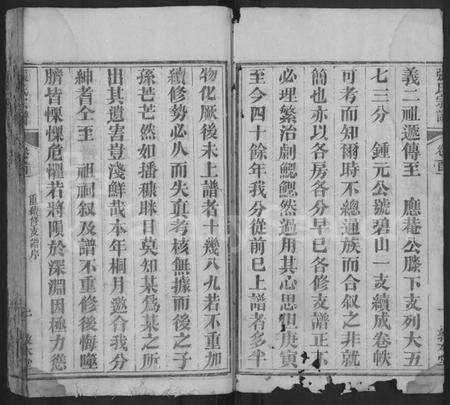 義二祖遞傳至　應菴公滕下支列大五
七三分　鍾元公號碧山一支續成卷帙
可考而知爾時不總通族而合叙之非就
簡也亦以各房各分早巳各修支譜正不
必理繁治劇鰓鰓然過用其心思但庚寅
至今四十餘年我分從前巳上譜者多半
物化厥後未上譜者十幾八九若不重加
續修勢必从而失真考核無據而後之子
孫芒芒然如播穅眯目莫知某爲某之所
出其遺害豈淺鮮哉本年桐月邀合我分
紳耆仝至　祖祠叙及譜不重修後悔噬
臍皆慄慄危懼若將隕於深淵因極力慫
重續修支譜序